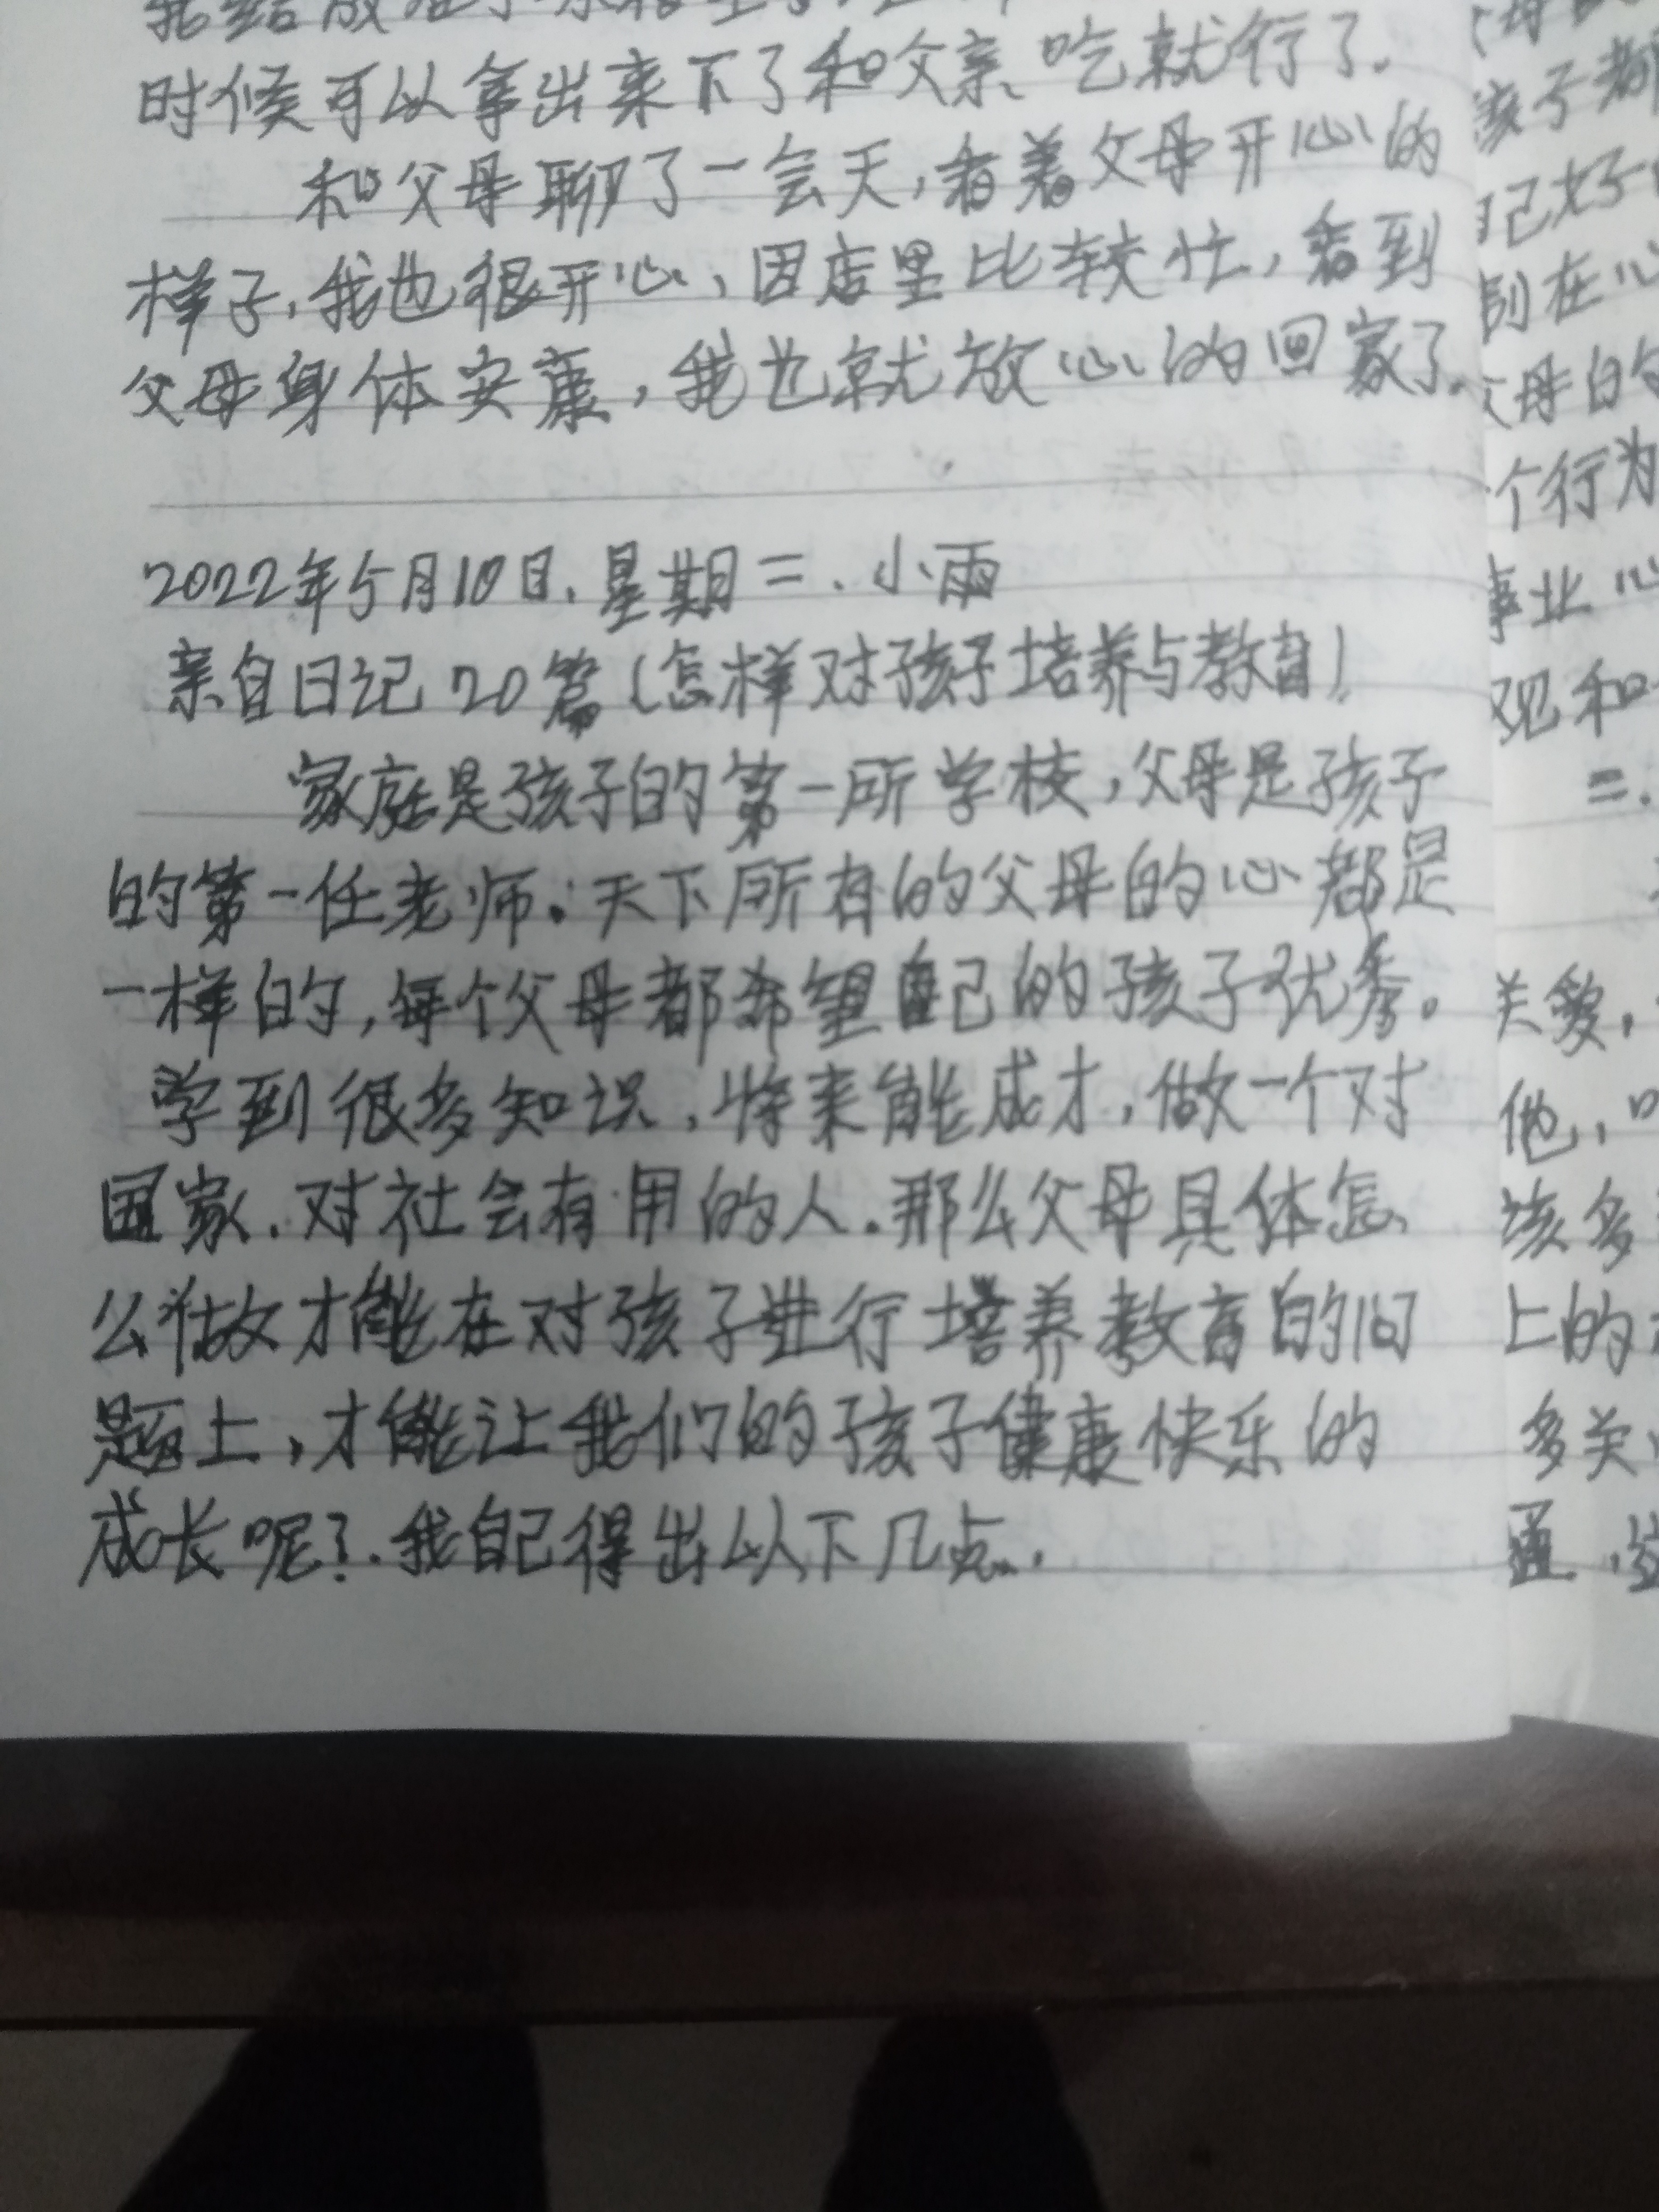 时候可以拿出来下了和父亲吃就行了。
和父母聊了一会天,看着父母开心的
样子,我也很开心、因店里比较忙,看到
父母身体安康,我也就放心的回家了。
2022年5月10日.星期二.小雨
亲自日记20篇(怎样对孩子培养与教育)
家庭是孩子的第一所学校,父母是孩子
的第一任老师.天下所有的父母的心都是
一样的,每个父母都希望自己的孩子优秀。
学到很多知识,将来能成才,做一个对
国家.对社会有用的人.那么父母具体怎
么做才能在对孩子进行培养教育的问
题上,才能让我们的孩子健康快乐的
成长呢?.我自己得出以下几点.
家子都
己好
在心
父母的
个行为
事业心
观和
二.
关爱,
他,
该多
上的
多关
通,